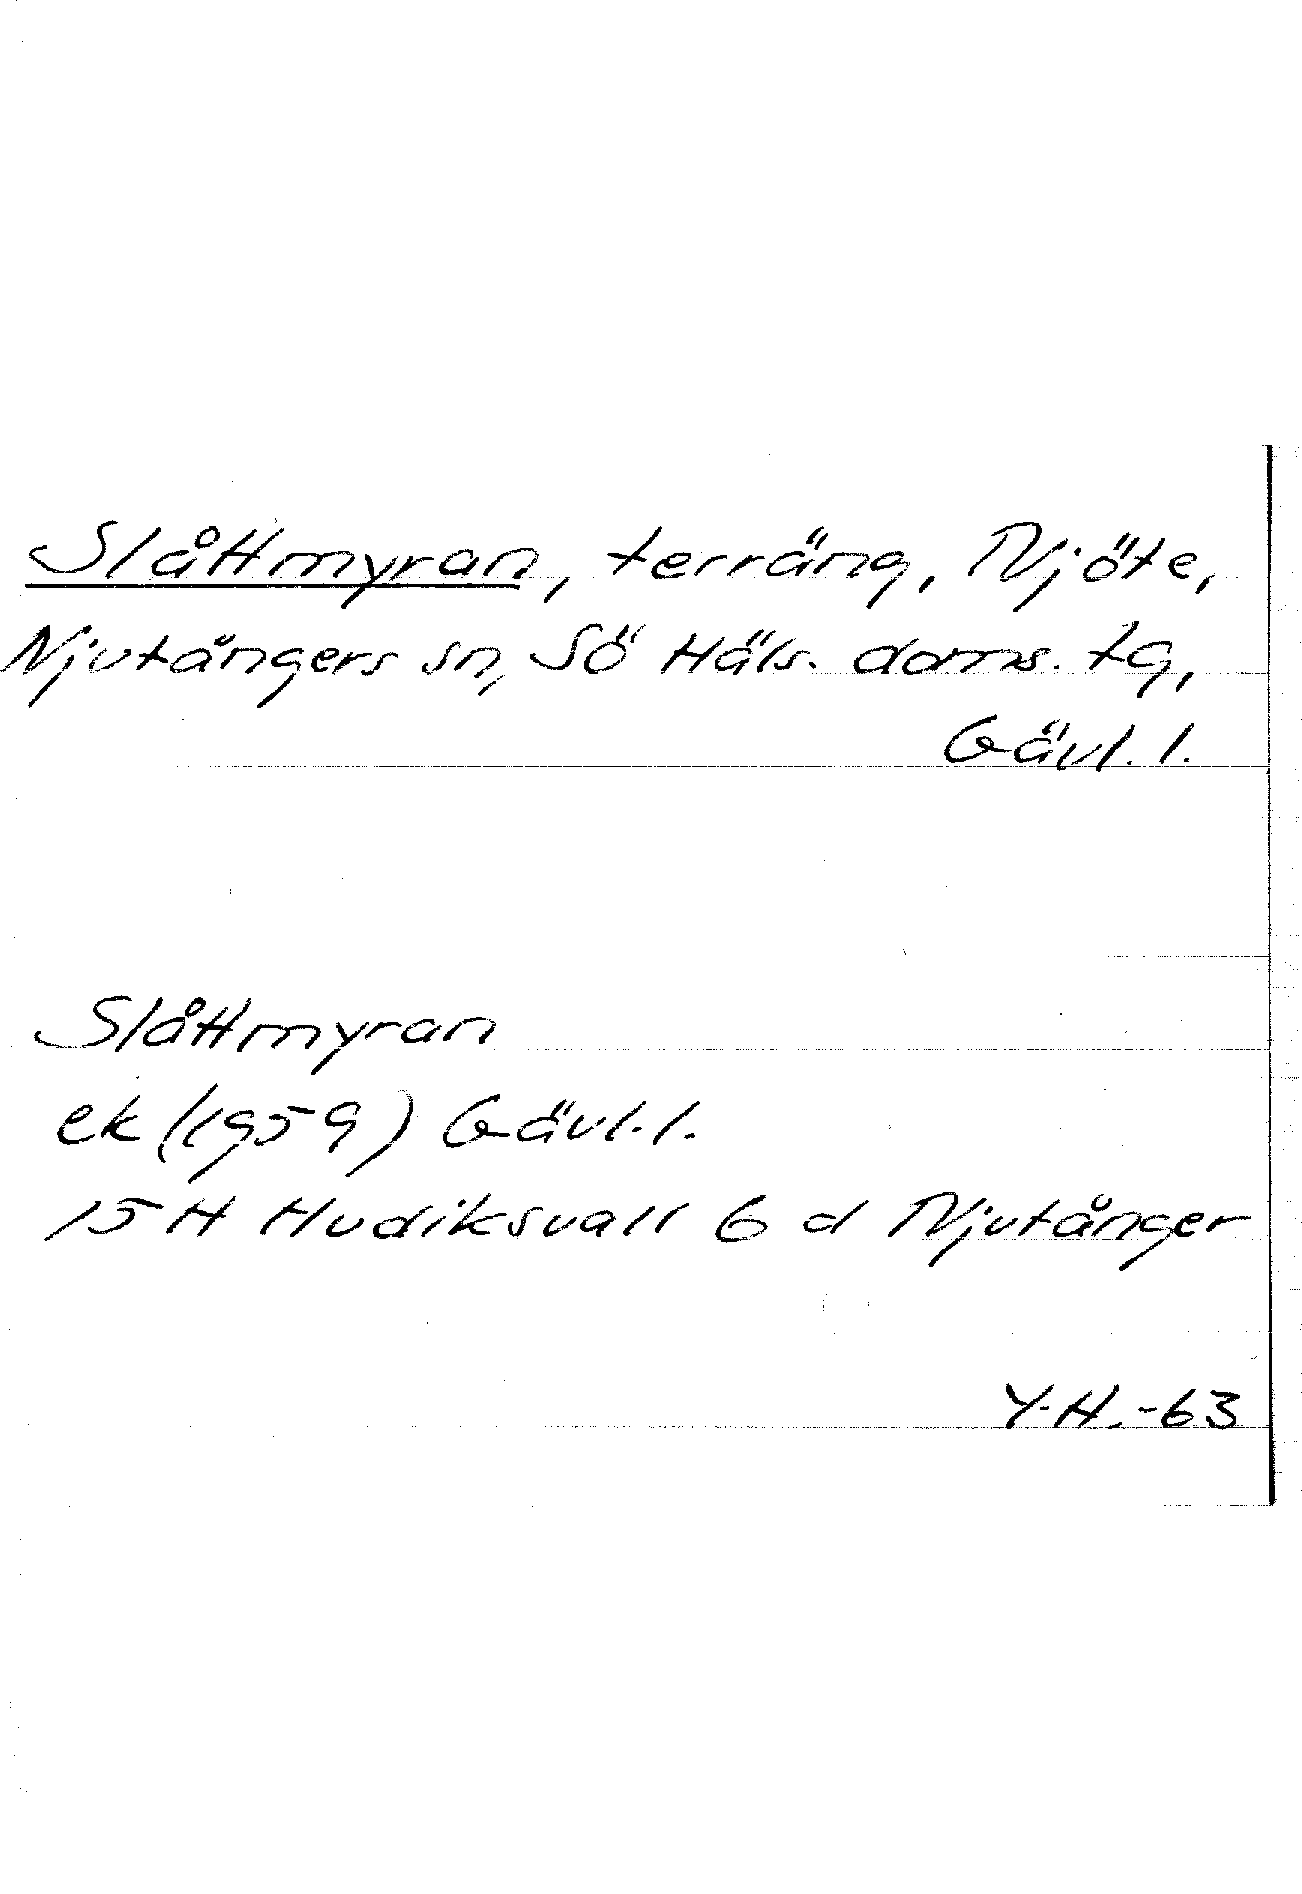 Slåttmyran, terräng, Njöte,
Njutångers sn, Sö Häls. doms. tg,
Gävl. l.
Slåttmyran
ek (1959) Gävl. l.
15 H Hudiksvall 6 d Njutånger
Y.H.-63